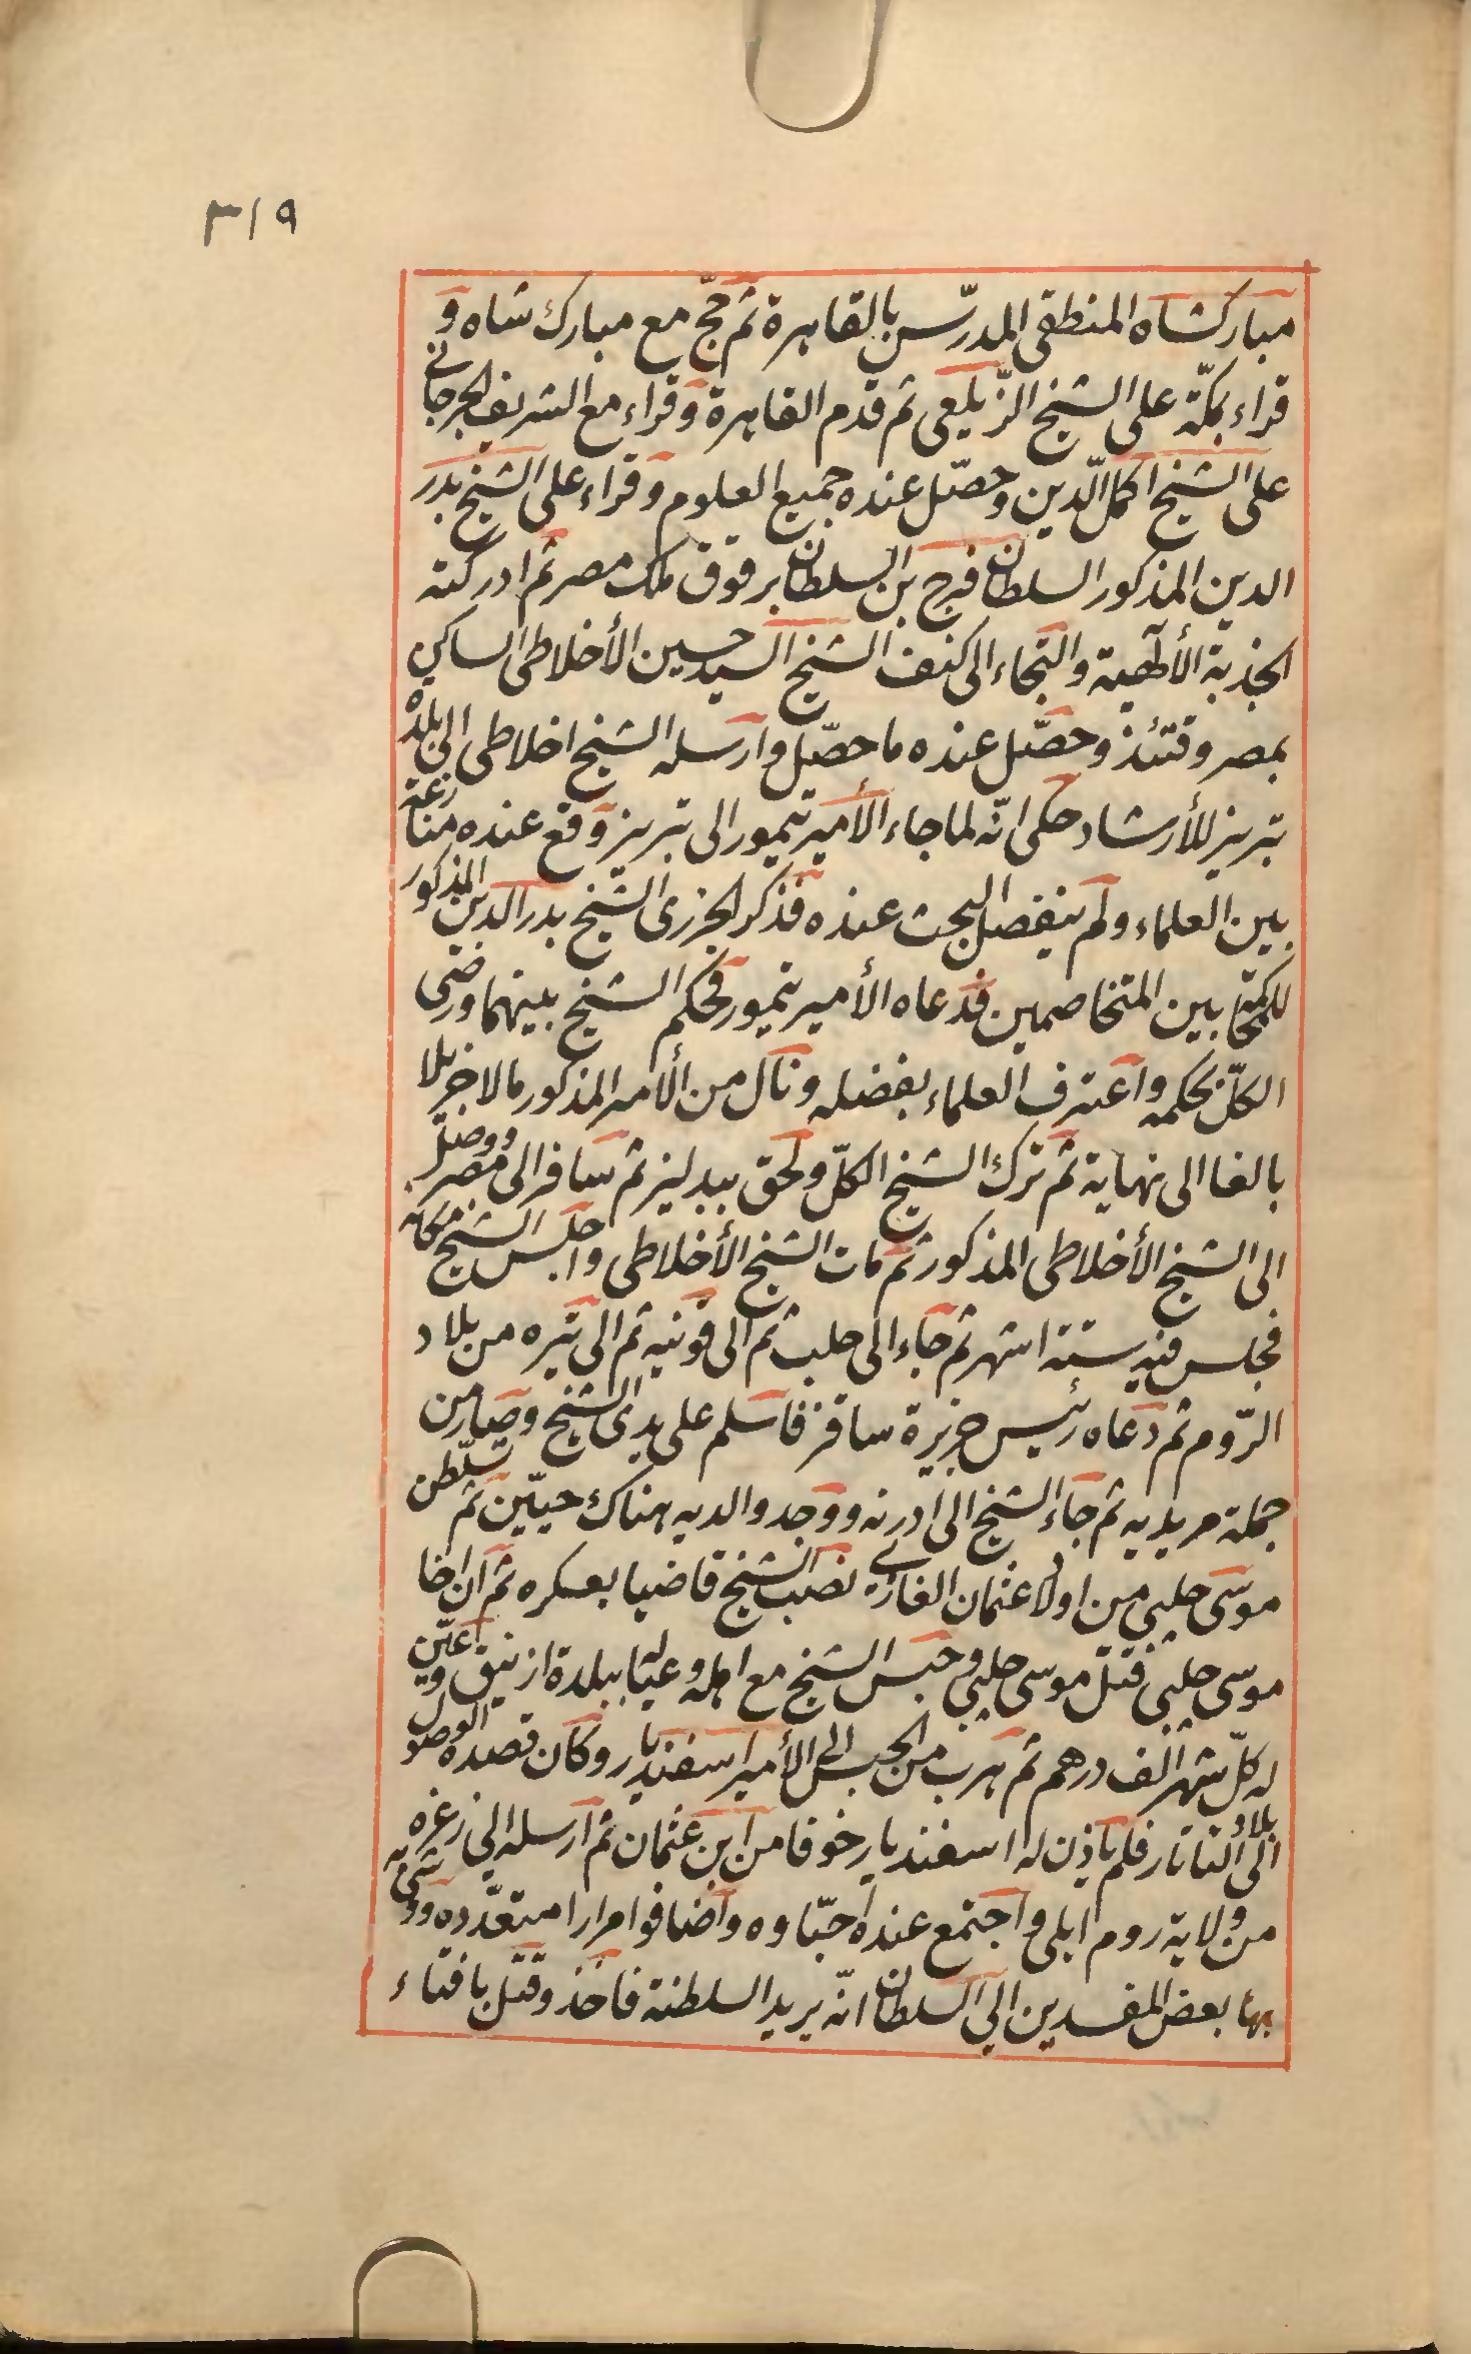 ٣١٩
مباركشاه المنطقى المدرّس بالقاهرة ثم حجّ مع مبارك شاه و
قراء بمكّة على الشيخ الزّيلعى ثم قدم القاهرة وقراء مع الشريف الجرجانى
على الشيخ اكمل الدّين وحصّل عنده جميع العلوم وقراء على الشيخ بدر
الدين المذكور السلطان فرج بن السلطان برقوق ملك مصر ثم ادركته
الجذبة الألٓهية والتجاء الى كنف الشيخ السيد حسين الأخلاطى الساكن
بمصر وقتئذ وحصّل عنده ما حصّل وارسله الشيخ اخلاطى الى بلدة
تبريز للأرشاد حكى انّه لما جاء الأمير تيمور الى تبريز وقع عنده منازعة
بين العلماء ولم ينفصل البحث عنده فذكر الجزرى الشيخ بدر الدين المذكور
للمحاكمة بين المتخاصمين فدعاه الأمير تيمور فحكم الشيخ بينهما ورضى
الكلّ بحكمه واعترف العلماء بفضله ونال من الأمير المذكور مالا جزيلا
بالغا الى نهاية ثم ترك الشيخ الكلّ ولحق ببدليز ثم سافر الى مصر ووصل
الى الشيخ الأخلاطى المذكور ثم مات الشيخ الأخلاطى واجلس الشيخ مكانه
فجلس فيه ستة اشهر ثم جاء الى حلب ثم الى قونيه ثم الى تيره من بلاد
الرّوم ثم دعاه رئيس جزيرة ساقز فاسلم على يدى الشيخ وصار من
جملة مريديه ثم جاء الشيخ الى ادرنه ووجد والديه هناك حيّين ثم تسلّطن
موسى چلبى من اولاد عثمان الغازى نصب الشيخ قاضيا بعسكره ثم ان اخا
موسى چلبى قتل موسى چلبى وحبس الشيخ مع اهله وعياله ببلدة ازنيق وعيّن
له كلّ شهر الف درهم ثم هرب من الحبس الى الأمير اسفنديار وكان قصده الوصول
الى بلاد التاتار فلم يأذن له اسفنديار خوفا من ابن عثمان ثم ارسله الى زغره
من ولاية روم ايلى واجتمع عنده احبّاوه واضافوا مرارا متعدّده ووشى به
بها بعض المفسدين الى السلطان انّه يريد السلطنة فاخذ وقتل بافتاء